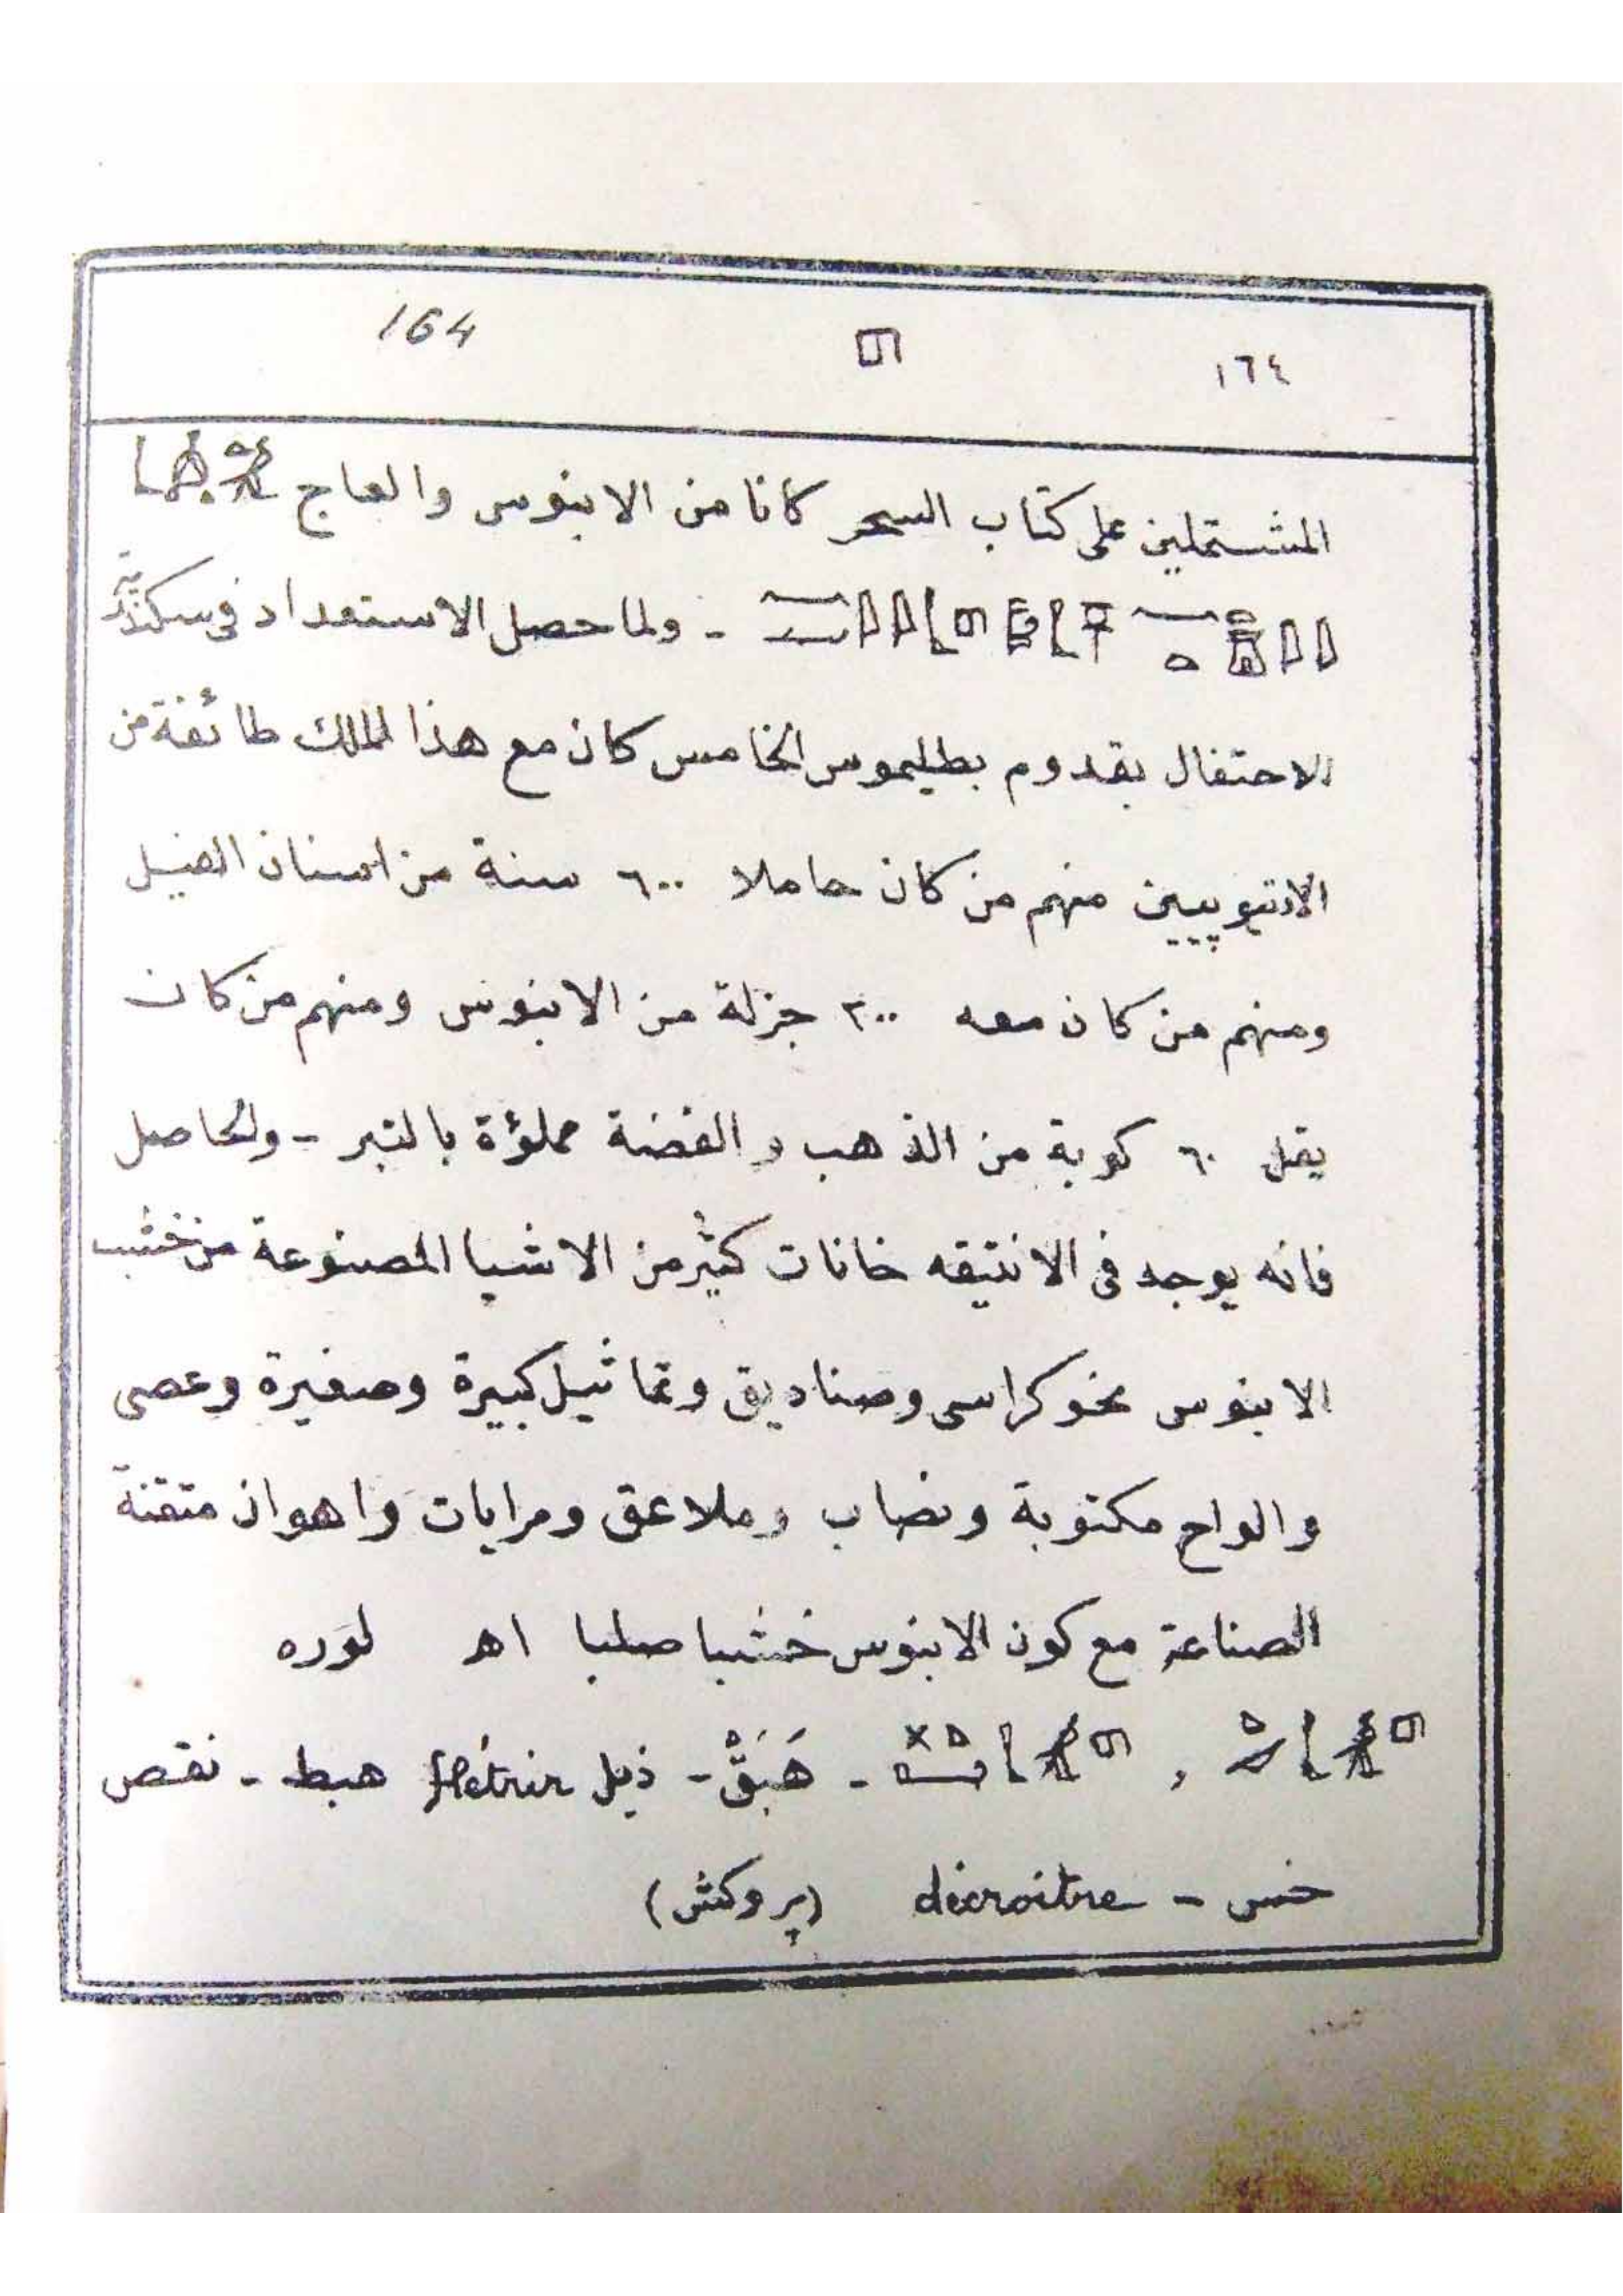 164 ١٦٤
المشتملين على كتاب السحر كانا من الابنوس والعاج
- ولما حصل الاستعداد فى سكندرية
للاحتفال بقدوم بطليموس الخامس كان مع هذا الملك طائفة من
الاتيوپيين منهم من كان حاملا ٦٠٠ سنة من اسنان الفيل
ومنهم من كان معه ٢٠٠ جزلة من الابنوس ومنهم من كان
يقل ٦٠ كوبة من الذهب والفضة مملؤة بالتبر - والحاصل
فانه يوجد فى الانتيقه خانات كثير من الاشيا المصنوعة من خشب
الابنوس نحو كراسى وصناديق وتماثيل كبيرة وصغيرة وعصى
والواح مكتوبة ونصاب وملاعق ومرايات واهوان متقنة
الصناعة مع كون الابنوس خشبا صلبا اه لوره
, - هَبَقْ - ذبل flétrir هبط - نقص
خس - décroitre (پروكش)